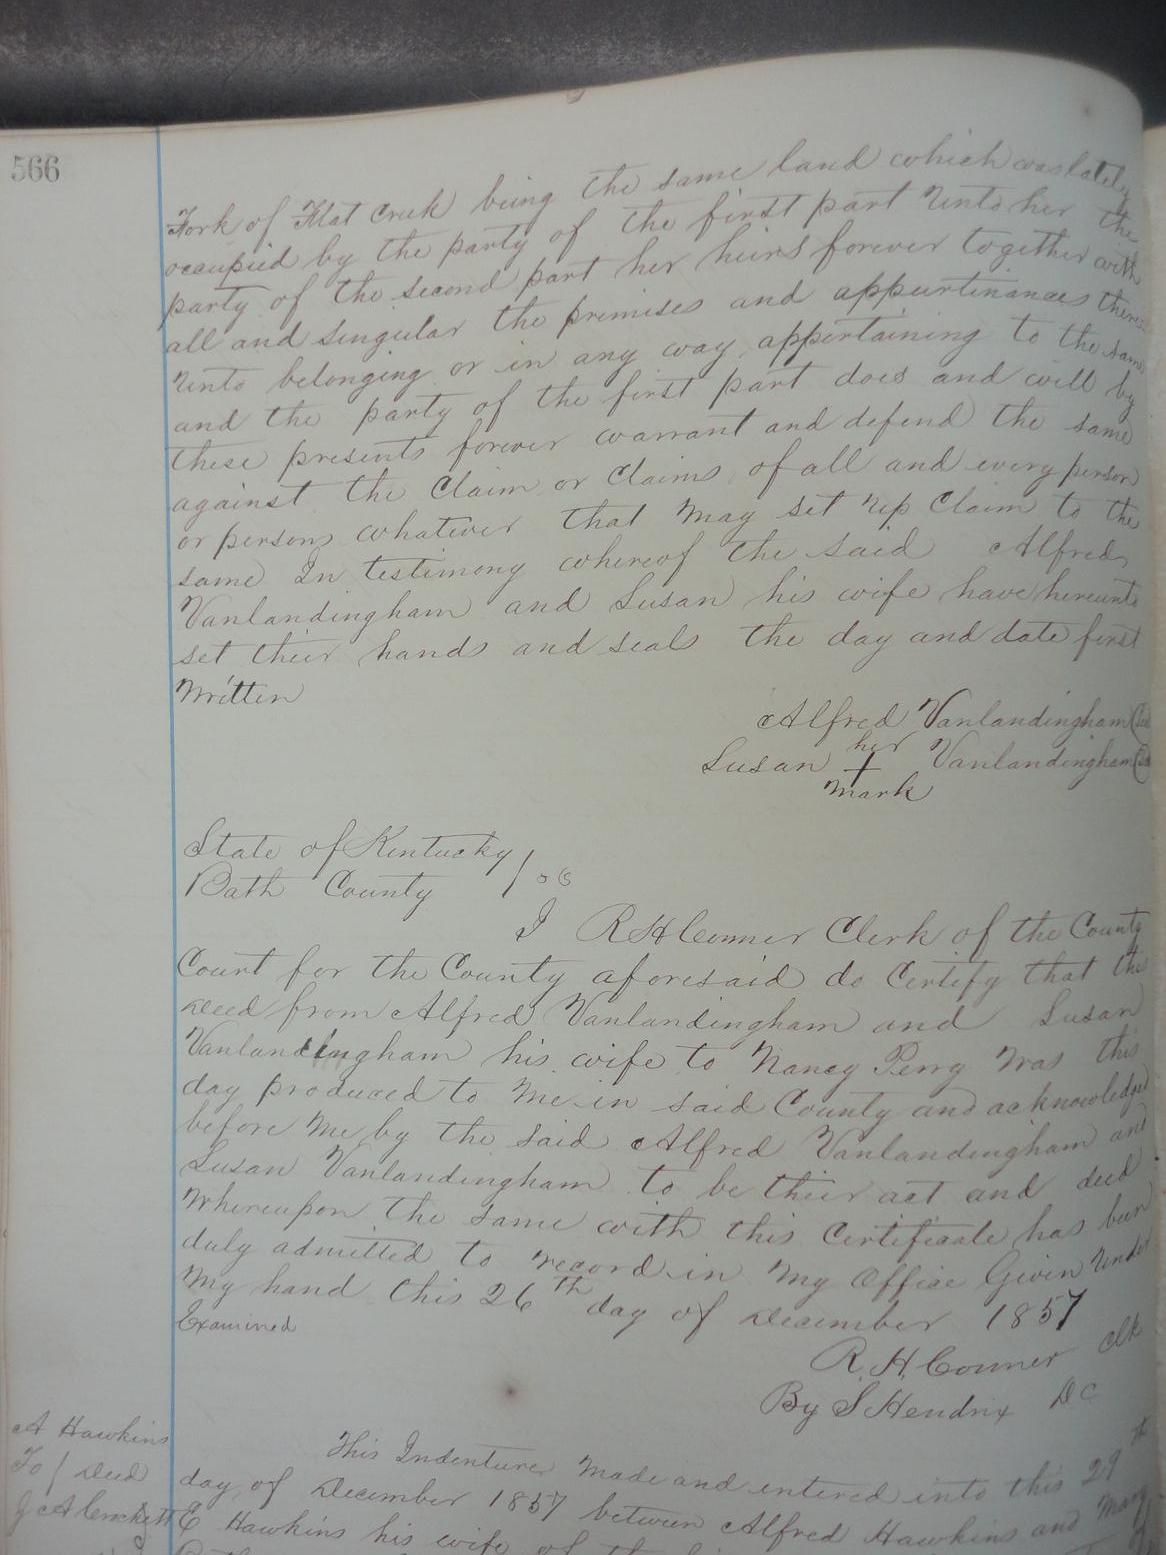 566
Fork of Flat Creek being the same land which was lately
occupied by the party of the first part Unto her the
party of the second part her heirs forever together with
all and singular the premises and appurtinances there
Unto belonging or in any way appertaining to the same
and the party of the first part does and will by
these presents forever warrant and defend the same
against the Claim or Claims of all and every person
or persons whatever that May set up Claim to the
same In testimony whereof the said Alfred
Vanlandingham and Susan his wife have hereunto
set their hands and seals the day and date first
Written
Alfred Vanlandingham (Seal)
her
Susan + Vanlandingham (Seal)
Mark
State of Kentucky
Bath County
I R H Conner Clerk of the County
Court for the County aforesaid do Certify that the
deed from Alfred Vanlandingham and Susan
Vanlandingham his wife to Nancy Perry Was this
day produced to Me in said County and acknowledged
before Me by the said Alfred Vanlandingham and
Susan Vanlandingham to be their act and deed
Whereupon the same with this Certificate has been
duly admitted to record in My Office Given Under
My hand this 26th day of December 1857
Examined
R. H. Conner Clk
By S Hendrix DC
A Hawkins
To / Deed
This Indenture Made and entered into this 29th
day of December 1857 between Alfred Hawkins and Mary
E Hawkins his wife of the